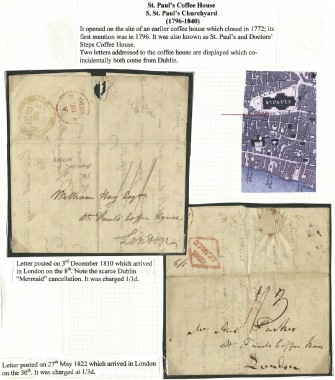 St. Paul's Coffee House
5, St. Paul's Churchyard
(1796-1840)
It opened on the site of an earlier coffee house which closed in 1772; its
first mention was in 1796. It was also known as St. Paul's and Doctors'
Steps Coffee House.
Two letters addressed to the coffee house are displayed which co-
incidentally both come from Dublin.
ST PAULS
William Hay Esqr
St Pauls Coffee House
London
Letter posted on 3rd December 1810 which arrived
in London on the 8th. Note the scarce Dublin
"Mermaid" cancellation. It was charged 1/1d.
1/3
Parker
St Pauls Coffee House
London
Letter posted on 27th May 1822 which arrived in London
on the 30th. It was charged at 1/3d.